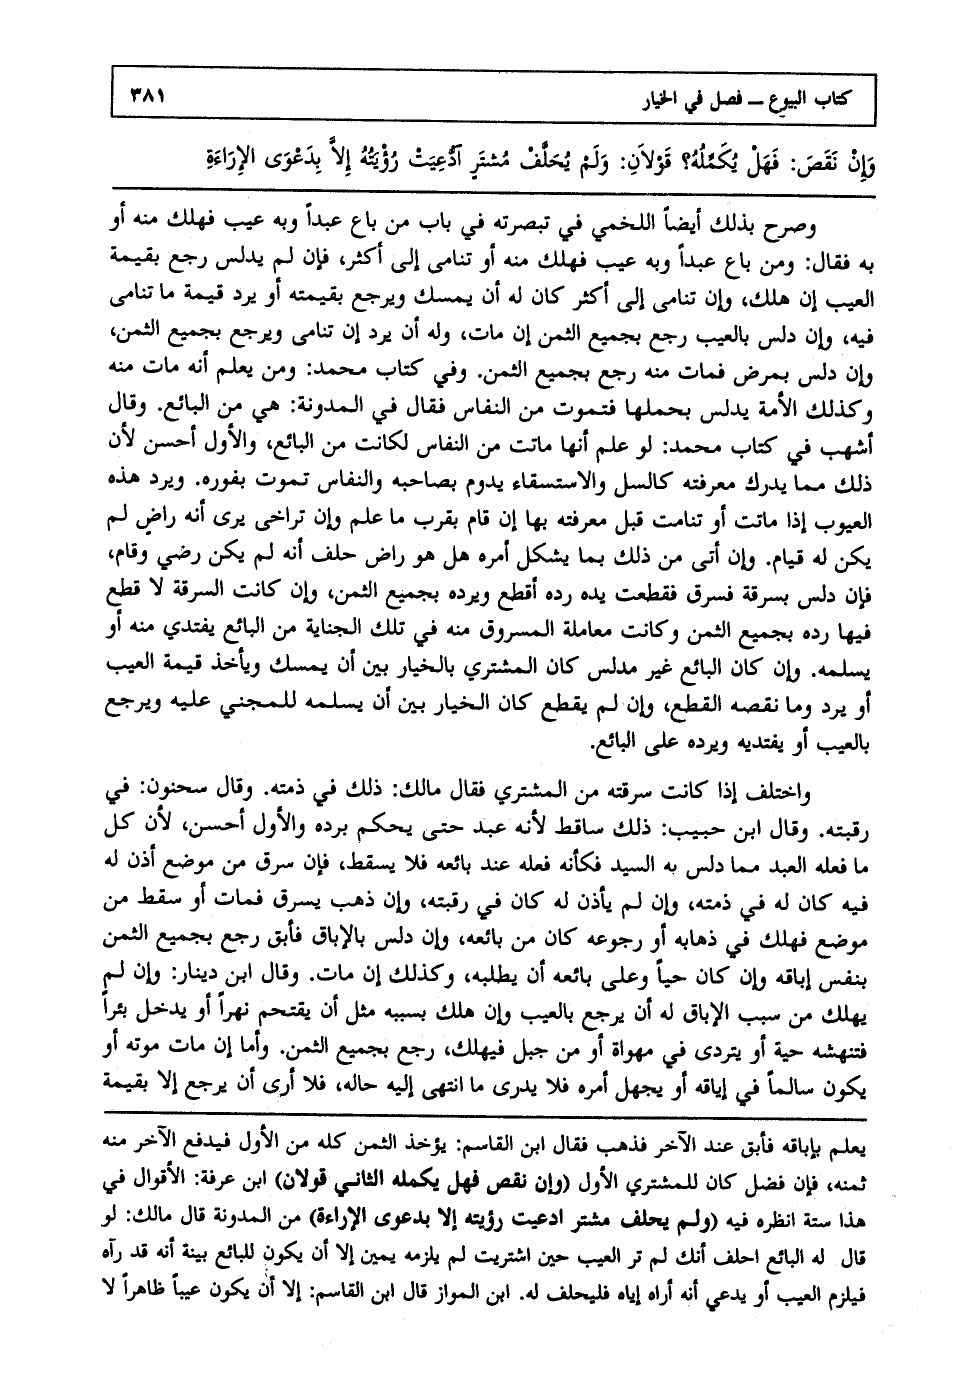 كتاب البيوع ــ فصل في الخيار ٣٨١
وَإِنْ نَقَصَ: فَهَلْ يُكَمِّلُهُ؟ قَوْلاَنِ: وَلَمْ يُحَلَّفْ مُشْتَرٍ آدُّعِيَتْ رُؤْيَتُهُ إِلاَّ بِدَعْوَى الإِرَاءَةِ
وصرح بذلك أيضاً اللخمي في تبصرته في باب من باع عبداً وبه عيب فهلك منه أو
به فقال: ومن باع عبداً وبه عيب فهلك منه أو تنامى إلى أكثر، فإن لم يدلس رجع بقيمة
العيب إن هلك، وإن تنامى إلى أكثر كان له أن يمسك ويرجع بقيمته أو يرد قيمة ما تنامى
فيه، وإن دلس بالعيب رجع بجميع الثمن إن مات، وله أن يرد إن تنامى ويرجع بجميع الثمن،
وإن دلس بمرض فمات منه رجع بجميع الثمن. وفي كتاب محمد: ومن يعلم أنه مات منه
وكذلك الأمة يدلس بحملها فتموت من النفاس فقال في المدونة: هي من البائع. وقال
أشهب في كتاب محمد: لو علم أنها ماتت من النفاس لكانت من البائع، والأول أحسن لأن
ذلك مما يدرك معرفته كالسل والاستسقاء يدوم بصاحبه والنفاس تموت بفوره. ويرد هذه
العيوب إذا ماتت أو تنامت قبل معرفته بها إن قام بقرب ما علم وإن تراخى يرى أنه راضٍ لم
يكن له قيام. وإن أتى من ذلك بما يشكل أمره هل هو راض حلف أنه لم يكن رضي وقام،
فإن دلس بسرقة فسرق فقطعت يده رده أقطع ويرده بجميع الثمن، وإن كانت السرقة لا قطع
فيها رده بجميع الثمن وكانت معاملة المسروق منه في تلك الجناية من البائع يفتدي منه أو
يسلمه. وإن كان البائع غير مدلس كان المشتري بالخيار بين أن يمسك ويأخذ قيمة العيب
أو يرد وما نقصه القطع، وإن لم يقطع كان الخيار بين أن يسلمه للمجني عليه ويرجع
بالعيب أو يفتديه ويرده على البائع.
واختلف إذا كانت سرقته من المشتري فقال مالك: ذلك في ذمته. وقال سحنون: في
رقبته. وقال ابن حبيب: ذلك ساقط لأنه عبد حتى يحكم برده والأول أحسن، لأن كل
ما فعله العبد مما دلس به السيد فكأنه فعله عند بائعه فلا يسقط، فإن سرق من موضع أذن له
فيه كان له في ذمته، وإن لم يأذن له كان في رقبته، وإن ذهب يسرق فمات أو سقط من
موضع فهلك في ذهابه أو رجوعه كان من بائعه، وإن دلس بالإباق فأبق رجع بجميع الثمن
بنفس إباقه وإن كان حياً وعلى بائعه أن يطلبه، وكذلك إن مات. وقال ابن دينار: وإن لم
يهلك من سبب الإباق له أن يرجع بالعيب وإن هلك بسببه مثل أن يقتحم نهراً أو يدخل بئراً
فتنهشه حية أو يتردى في مهواة أو من جبل فيهلك، رجع بجميع الثمن. وأما إن مات موته أو
يكون سالماً في إباقه أو يجهل أمره فلا يدرى ما انتهى إليه حاله، فلا أرى أن يرجع إلا بقيمة
يعلم بإباقه فأبق عند الآخر فذهب فقال ابن القاسم: يؤخذ الثمن كله من الأول فيدفع الآخر منه
ثمنه، فإن فضل كان للمشتري الأول (وإن نقص فهل يكمله الثاني قولان) ابن عرفة: الأقوال في
هذا ستة انظره فيه (ولم يحلف مشتر ادعيت رؤيته إلا بدعوى الإراءة) من المدونة قال مالك: لو
قال له البائع احلف أنك لم تر العيب حين اشتريت لم يلزمه يمين إلا أن يكون للبائع بينة أنه قد رآه
فيلزم العيب أو يدعي أنه أراه إياه فليحلف له. ابن المواز قال ابن القاسم: إلا أن يكون عيباً ظاهراً لا